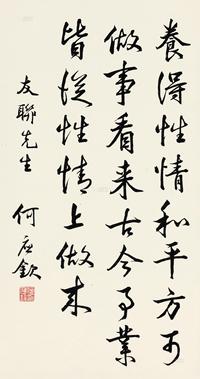 養得性情和平方可
做事看来古今事業
皆從性情上做來
友聯先生
何应欽